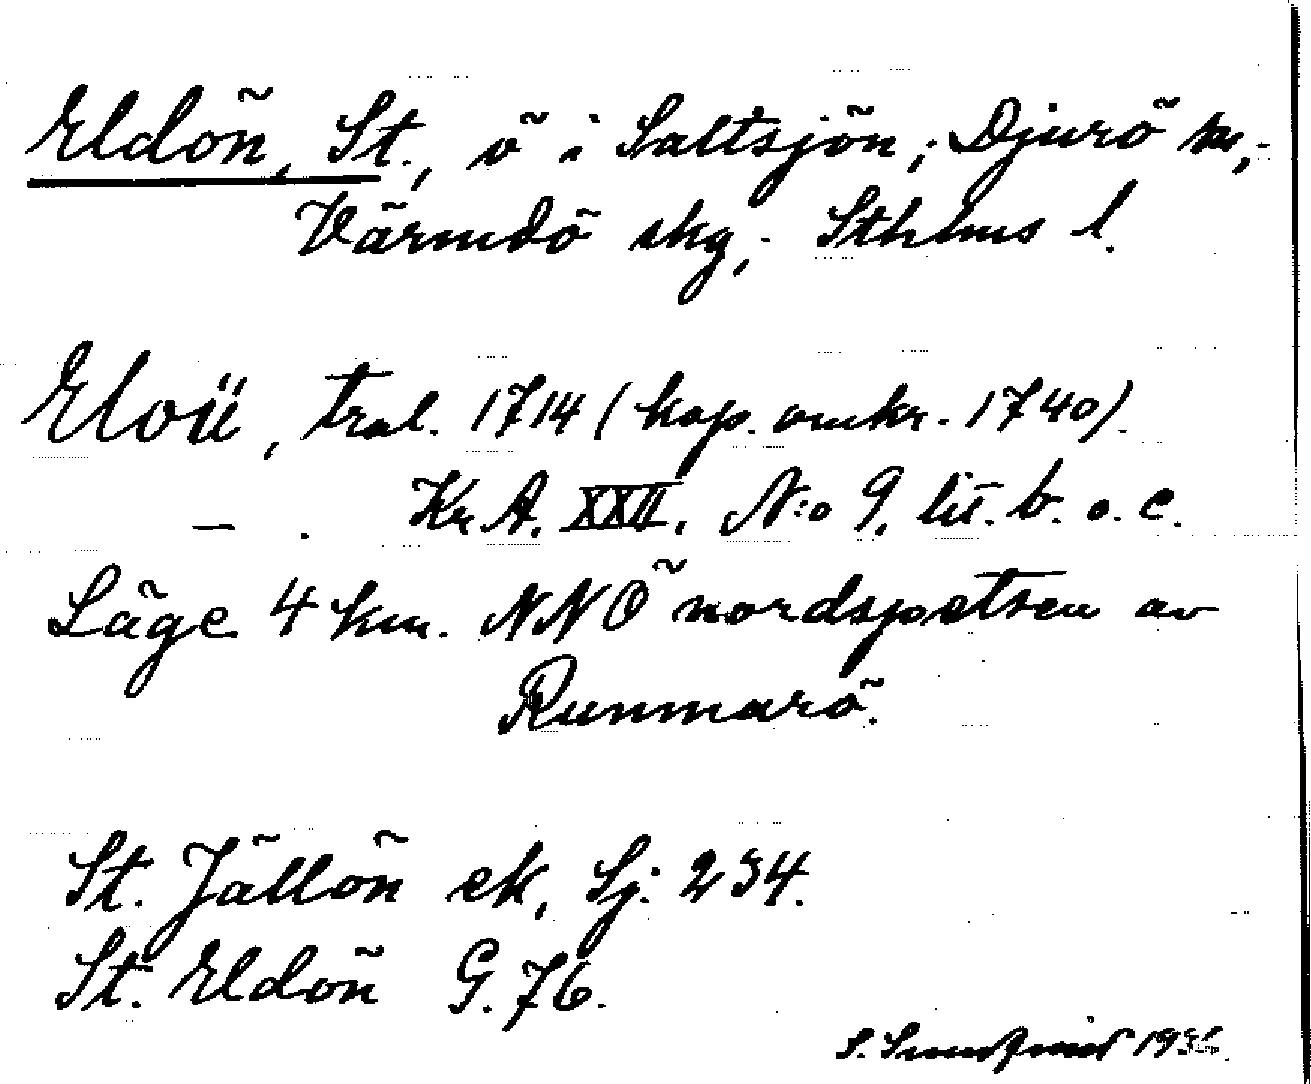 Eldön, St., ö i Saltsjön; Djurö sn,
Värmdö skg, Sthlms l.
Eloü, tral. 1714 (kop. omkr. 1740).
— . Kr. A. XXII. N:o 9. lit. b. o. c.
Läge 4 km. NNÖ nordspetsen av
Runmarö.
St. Jällön ek, Sj. 234.
St. Eldön G. 76.
S. 1936.